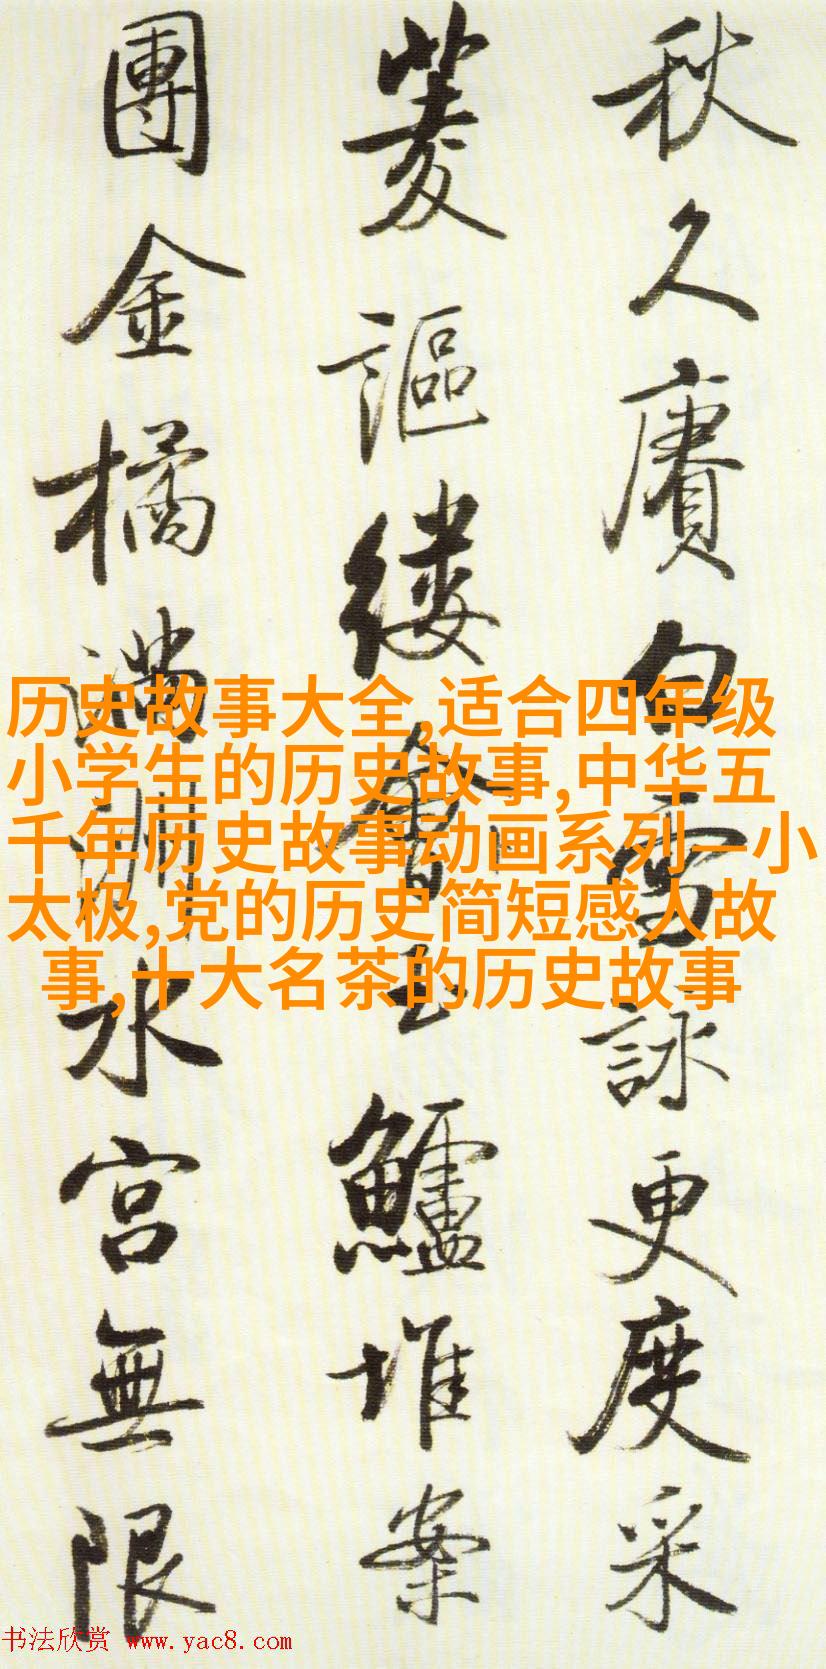 秋久賡白雪詠更度采
菱謳縷會玉鱸堆案
團金橘滿洲水宮無限
历史故事大全,适合四年级
小学生的历史故事,中华五
千年历史故事动画系列—小
太极,党的历史简短感人故
事,十大名茶的历史故事
书法欣赏 www.yac8.com